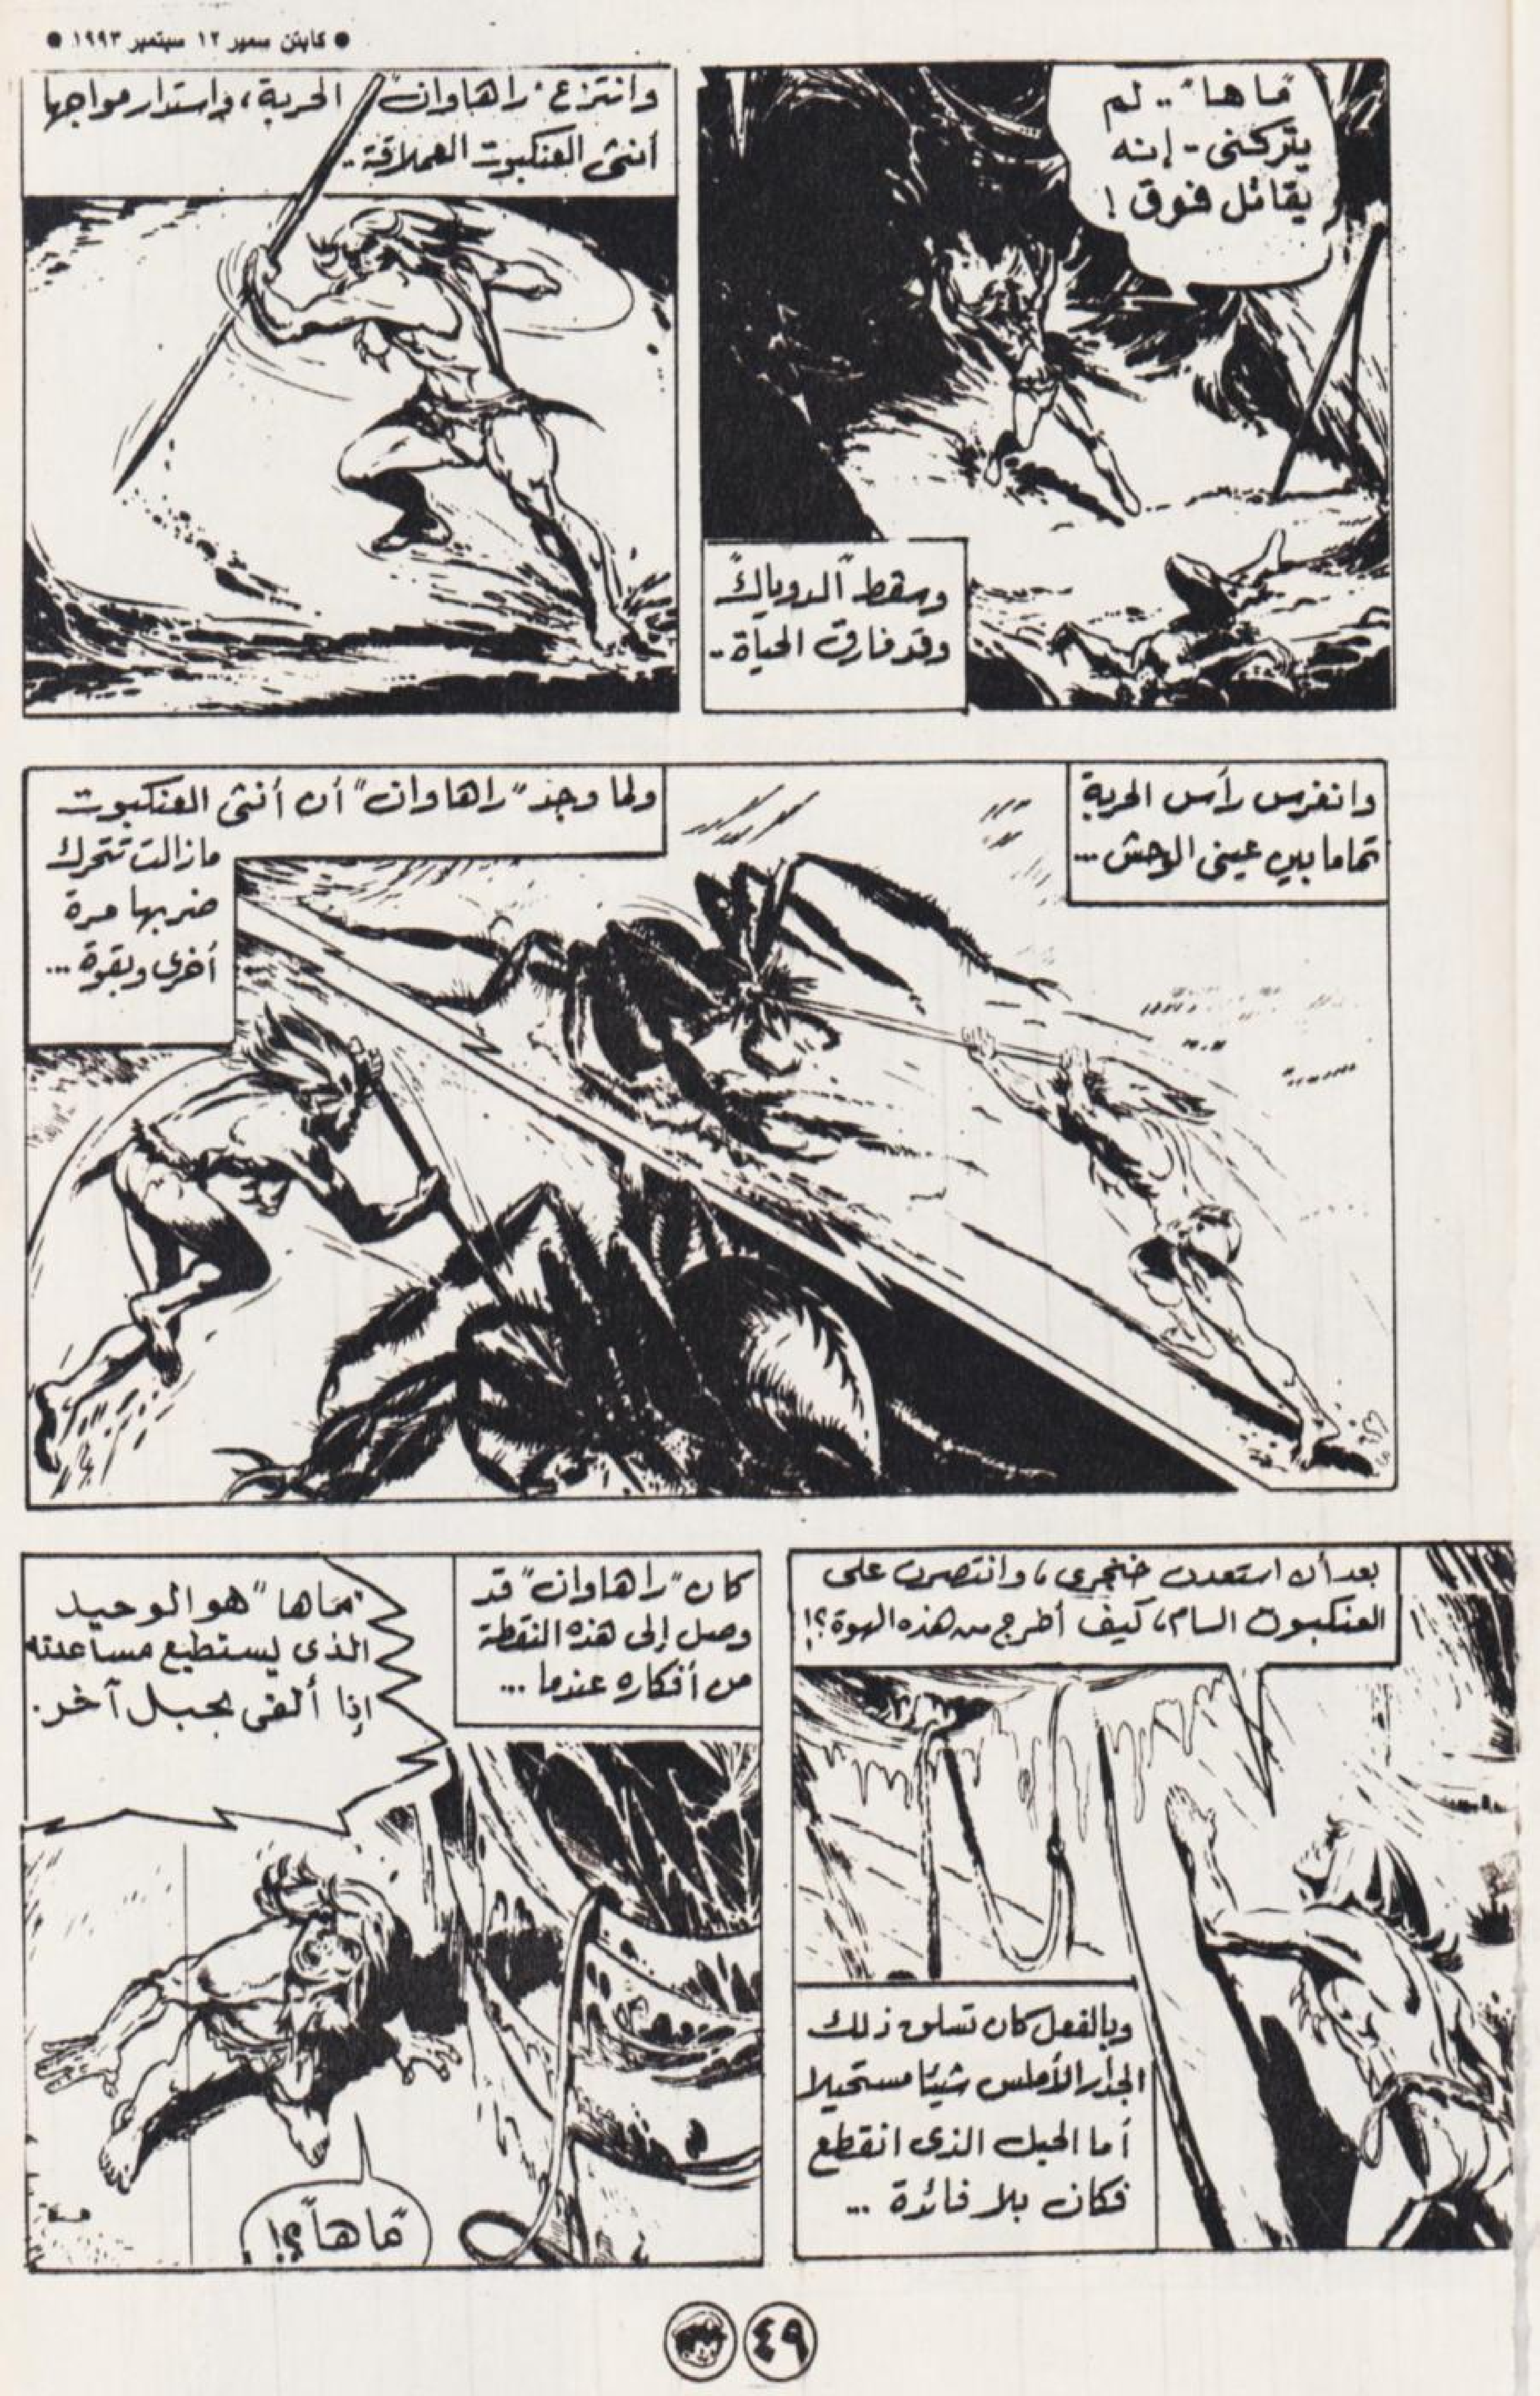 • كابتن سمير ١٢ سبتمبر ١٩٩٣ •
"ماها" .. لم
يتركنى - إنه
يقاتل فوق !
وسقط "الدوياك"
وقد فارق الحياة ..
وانتزع "راهاوان" الحربة، واستدار مواجها
أنثى العنكبوت العملاقة ..
وانغرس رأس الحربة
تماما بين عينى الوحش ...
ولما وجد "راهاوان" أن أنثى العنكبوت
مازالت تتحرك
ضربها مرة
أخرى وبقوة ...
بعد أن استعدت خنجرى، وانتصرت على
العنكبوت السام، كيف أخرج من هذه الهوة؟!
وبالفعل كان تسلق ذلك
الجدار الأملس شيئا مستحيلا
أما الحبل الذى انقطع
فكان بلا فائدة ...
كان "راهاوان" قد
وصل إلى هذه النقطة
من أفكاره عندما ...
"ماها" هو الوحيد
الذى يستطيع مساعدته
إذا ألقى بحبل آخر.
"ماها"؟!
٤٩